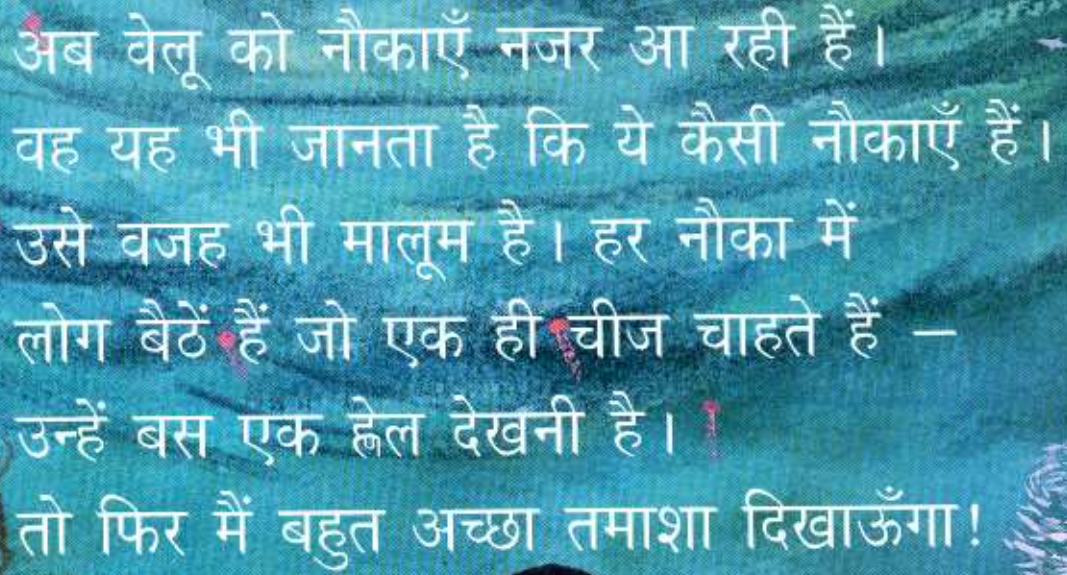 अब वेलू को नौकाएँ नजर आ रही हैं।
वह यह भी जानता है कि ये कैसी नौकाएँ हैं।
उसे वजह भी मालूम है। हर नौका में
लोग बैठें हैं जो एक ही चीज चाहते हैं –
उन्हें बस एक ह्वेल देखनी है।
तो फिर मैं बहुत अच्छा तमाशा दिखाऊँगा!